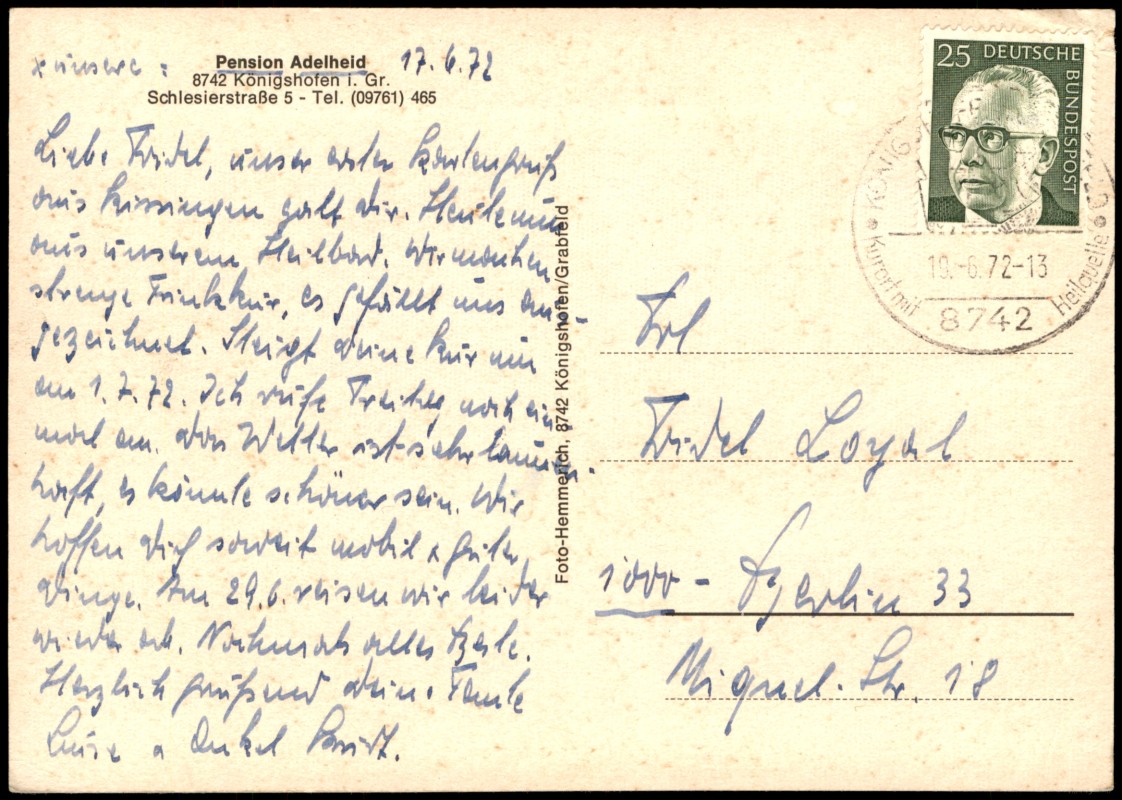 x unsere : Pension Adelheid 17.6.72
8742 Königshofen i. Gr.
Schlesierstraße 5 - Tel. (09761) 465
Liebe Fridel, unser erster Kartengruß
aus Kissingen galt dir. Heute nun
aus unserem Heilbad. Wir machen
strenge Trinkkur, es gefällt uns aus-
gezeichnet. Steigt deine Kur nun
am 1.7.72. Ich rufe Freitag noch ein
mal an. Das Wetter ist sehr launen-
haft, es könnte schöner sein. Wir
hoffen dich soweit mobil & guter
Dinge. Am 29.6. reisen wir leider
wieder ab. Nochmals alles Beste.
Herzlich grüßend deine Tante
Luise u Onkel Kurt.
Foto-Hemmerich, 8742 Königshofen/Grabfeld
25 DEUTSCHE BUNDESPOST
KÖNIG
19.-6.72-13
8742
Kurort mit Heilquelle
Frl
Fridel Loyal
1000 - Berlin 33
Miquel. Str. 18